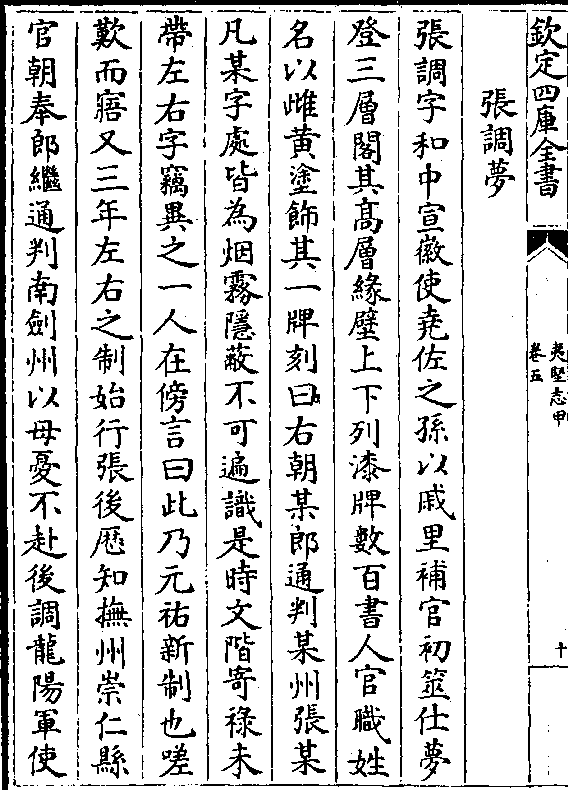 欽定四庫全書
夷堅志甲
卷五
十
張調夢
張調字和中宣徽使堯佐之孫以戚里補官初筮仕夢
登三層閣其髙層緣壁上下列漆牌數百書人官職姓
名以雌黄塗飾其一牌刻曰右朝某郎通判某州張某
凡某字處皆為烟霧隱蔽不可遍識是時文階寄祿未
帶左右字竊異之一人在傍言曰此乃元祐新制也嗟
歎而寤又三年左右之制始行張後歴知撫州崇仁縣
官朝奉郎繼通判南劍州以母憂不赴後調龍陽軍使